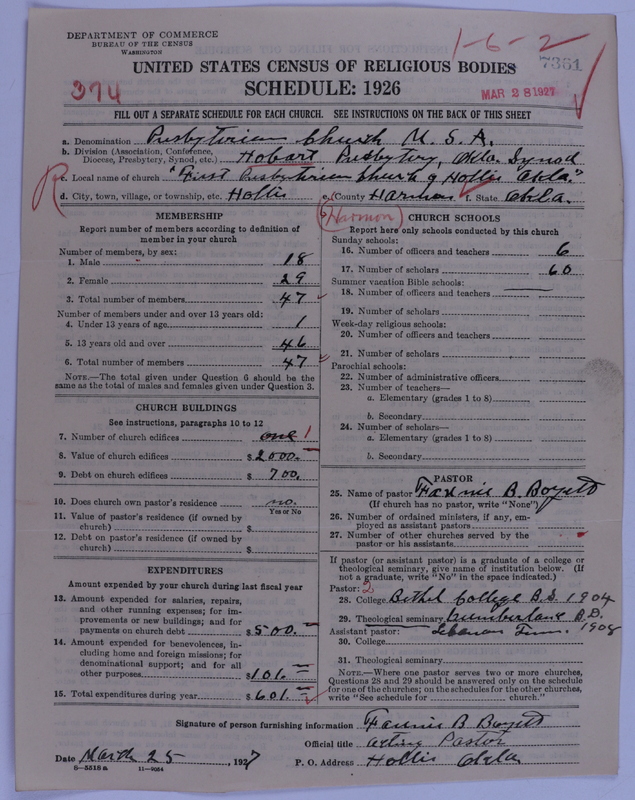 DEPARTMENT OF COMMERCE
BUREAU OF THE CENSUS
WASHINGTON
1-6-2
7351
UNITED STATES CENSUS OF RELIGIOUS BODIES
374
SCHEDULE: 1926
MAR 28 1927
FILL OUT A SEPARATE SCHEDULE FOR EACH CHURCH. SEE INSTRUCTIONS ON THE BACK OF THIS SHEET
a. Denomination Presbyterian Church U. S. A.
b. Division (Association, Conference, Diocese, Presbytery, Synod, etc.) Hobart Presbytery, Okla. Synod
c. Local name of church "First Presbyterian Church of Hollis Okla."
d. City, town, village, or township, etc. Hollis e. County Harmon f. State Okla.
(Harmon)
MEMBERSHIP
Report number of members according to definition of
member in your church
Number of members, by sex:
1. Male 18
2. Female 29
3. Total number of members 47
Number of members under and over 13 years old:
4. Under 13 years of age 1
5. 13 years old and over 46
6. Total number of members 47
NOTE.—The total given under Question 6 should be
the same as the total of males and females given under Question 3.
CHURCH BUILDINGS
See instructions, paragraphs 10 to 12
7. Number of church edifices one 1
8. Value of church edifices $ 2000.
9. Debt on church edifices $ 700.
10. Does church own pastor's residence no.
Yes or No
11. Value of pastor's residence (if owned by
church) $
12. Debt on pastor's residence (if owned by
church) $
EXPENDITURES
Amount expended by your church during last fiscal year
13. Amount expended for salaries, repairs,
and other running expenses; for im-
provements or new buildings; and for
payments on church debt $ 500.
14. Amount expended for benevolences, in-
cluding home and foreign missions; for
denominational support; and for all
other purposes $ 101.
15. Total expenditures during year $ 601.
CHURCH SCHOOLS
Report here only schools conducted by this church
Sunday schools:
16. Number of officers and teachers 6
17. Number of scholars 60
Summer vacation Bible schools:
18. Number of officers and teachers
19. Number of scholars
Week-day religious schools:
20. Number of officers and teachers
21. Number of scholars
Parochial schools:
22. Number of administrative officers
23. Number of teachers—
a. Elementary (grades 1 to 8)
b. Secondary
24. Number of scholars—
a. Elementary (grades 1 to 8)
b. Secondary
PASTOR
25. Name of pastor Fannie B. Boyett
(If church has no pastor, write "None")
26. Number of ordained ministers, if any, em-
ployed as assistant pastors
27. Number of other churches served by the
pastor or his assistants
If pastor (or assistant pastor) is a graduate of a college or
theological seminary, give name of institution below. (If
not a graduate, write "No" in the space indicated.)
Pastor: 2
28. College Bethel College B.S. 1904
29. Theological seminary Cumberland B.D.
Assistant pastor: Lebanon Tenn. 1908
30. College
31. Theological seminary
NOTE.—Where one pastor serves two or more churches,
Questions 28 and 29 should be answered only on the schedule
for one of the churches; on the schedules for the other churches,
write "See schedule for church."
Signature of person furnishing information Fannie B Boyett
Official title Acting Pastor
Date March 25, 1927 P. O. Address Hollis Okla
8—5518 a 11—9054